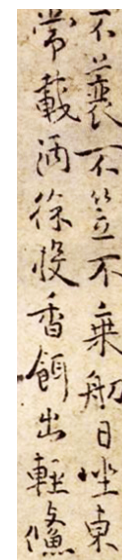 不蓑不笠不乘舠日坐東
常載酒徐投香餌出輕鯈